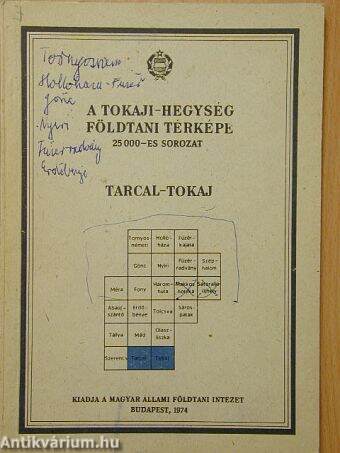 Hollóháza - Füzér
Gönc
Nyíri
Füzérradvány
Erdőbénye
A TOKAJI-HEGYSÉG
FÖLDTANI TÉRKÉPE
25 000-ES SOROZAT
TARCAL-TOKAJ
Tornyos-
németi
Holló-
háza
Füzér-
kajata
Gönc
Nyíri
Füzér-
radvány
Szép-
halom
Méra
Fony
Három-
huta
Makkos-
hotyka
Sátoralja-
újhely
Abaúj-
szántó
Erdő-
bénye
Tolcsva
Sáros-
patak
Tállya
Mád
Olasz-
liszka
Szerencs
Tarcal
Tokaj
KIADJA A MAGYAR ÁLLAMI FÖLDTANI INTÉZET
BUDAPEST, 1974
Antikvárium.hu